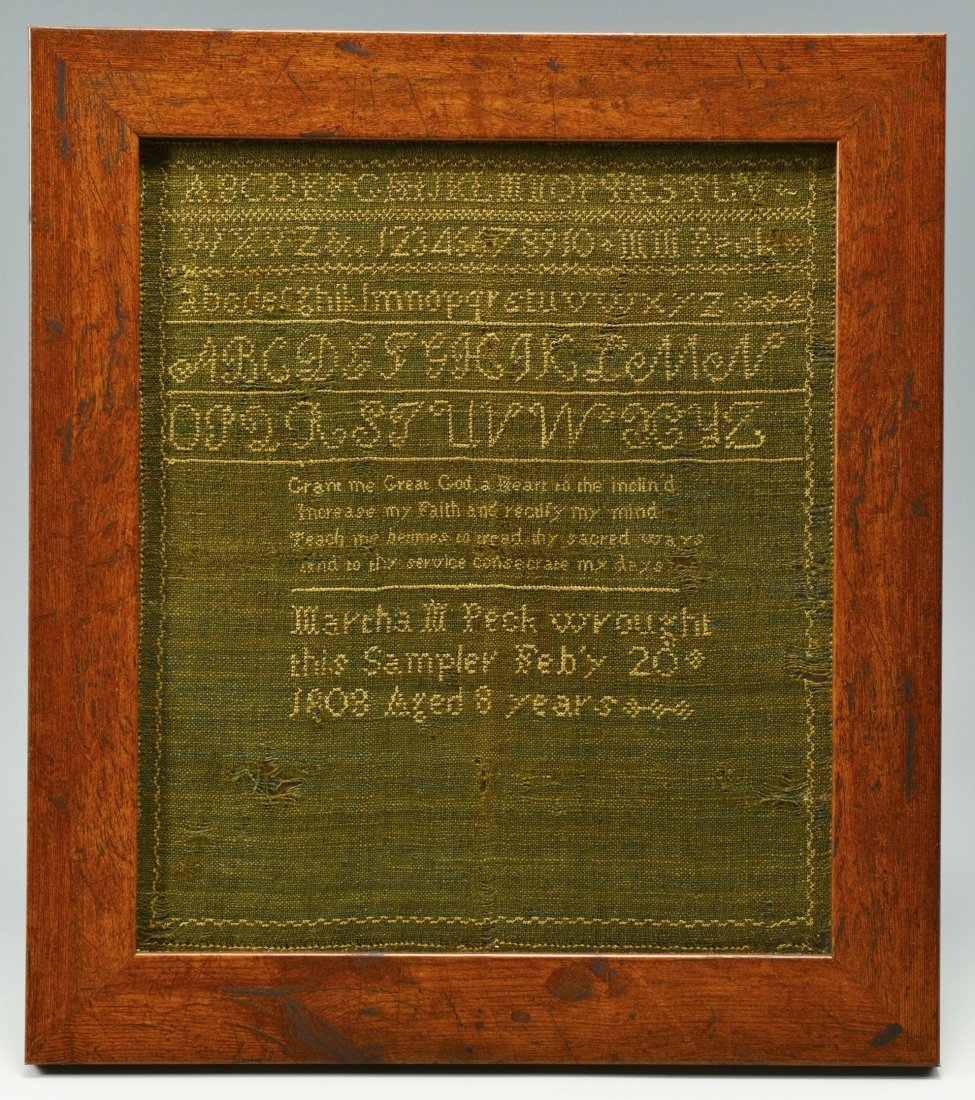 ABCDEFGHIJKLMNOPQRSTUV
WXYZ& 12345678910 MM Peck
abcdefghiklmnopqrstuvwxyz
ABCDEFGHIKLMN
OPQRSTUVWXYZ
Grant me Great God, a Heart to the inclin'd
Increase my Faith and rectify my mind
Teach me betimes to tread thy sacred ways
and to thy service consecrate my days
Martha M Peck wrought
this Sampler Feb'y 20
1808 Aged 8 years